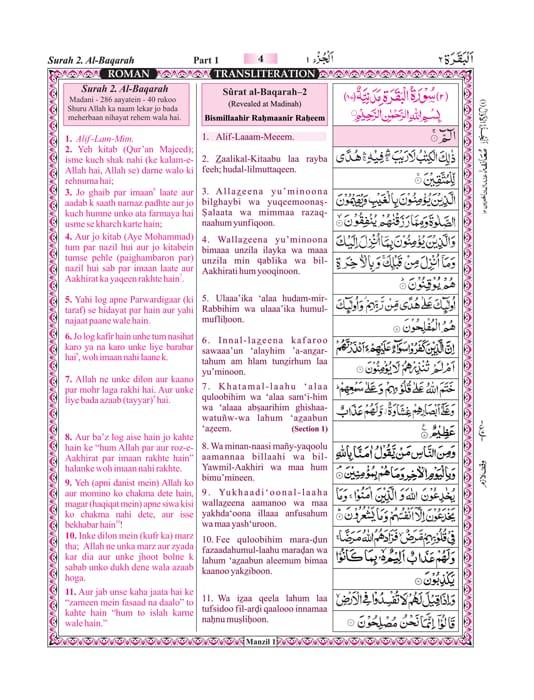 Surah 2. Al-Baqarah Part 1 4 اَلْجُزْء ١ اَلْبَقَرَة ٢
ROMAN TRANSLITERATION
Surah 2. Al-Baqarah
Madani - 286 aayatein - 40 rukoo
Shuru Allah ka naam lekar jo bada
meherbaan nihayat rehem wala hai.
1. Alif-Lam-Mim.
2. Yeh kitab (Qur'an Majeed);
isme kuch shak nahi (ke kalam-e-
Allah hai, Allah se) darne walo ki
rehnuma hai;
3. Jo ghaib par imaan laate aur
aadab k saath namaz padhte aur jo
kuch humne unko ata farmaya hai
usme se kharch karte hain;
4. Aur jo kitab (Aye Mohammad)
tum par nazil hui aur jo kitabein
tumse pehle (paighambaron par)
nazil hui sab par imaan laate aur
Aakhirat ka yaqeen rakhte hain.
5. Yahi log apne Parwardigaar (ki
taraf) se hidayat par hain aur yahi
najaat paane wale hain.
6. Jo log kafir hain unhe tum nasihat
karo ya na karo unke liye barabar
hai, woh imaan nahi laane k.
7. Allah ne unke dilon aur kaano
par mohr laga rakhi hai. Aur unke
liye bada azaab (tayyar) hai.
8. Aur ba'z log aise hain jo kahte
hain ke "hum Allah par aur roz-e-
Aakhirat par imaan rakhte hain"
halanke woh imaan nahi rakhte.
9. Yeh (apni danist mein) Allah ko
aur momino ko chakma dete hain,
magar (haqiqat mein) apne siwa kisi
ko chakma nahi dete, aur isse
bekhabar hain!
10. Inke dilon mein (kufr ka) marz
tha; Allah ne unka marz aur zyada
kar dia aur unke jhoot bolne k
sabab unko dukh dene wala azaab
hoga.
11. Aur jab unse kaha jaata hai ke
"zameen mein fasaad na daalo" to
kahte hain "hum to islah karne
wale hain."
Sûrat al-Baqarah–2
(Revealed at Madinah)
Bismillaahir Raḥmaanir Raḥeem
1. Alif-Laaam-Meeem.
2. Zaalikal-Kitaabu laa rayba
feeh; hudal-lilmuttaqeen.
3. Allazeena yu'minoona
bilghaybi wa yuqeemoonaṣ-
Ṣalaata wa mimmaa razaq-
naahum yunfiqoon.
4. Wallazeena yu'minoona
bimaaa unzila ilayka wa maaa
unzila min qablika wa bil-
Aakhirati hum yooqinoon.
5. Ulaaa'ika 'alaa hudam-mir-
Rabbihim wa ulaaa'ika humul-
mufliḥoon.
6. Innal-lazeena kafaroo
sawaaa'un 'alayhim 'a-anzar-
tahum am lam tunzirhum laa
yu'minoon.
7. Khatamal-laahu 'alaa
quloobihim wa 'alaa sam'i-him
wa 'alaaa abṣaarihim ghishaa-
watuñw-wa lahum 'azaabun
'aẓeem. (Section 1)
8. Wa minan-naasi mañy-yaqoolu
aamannaa billaahi wa bil-
Yawmil-Aakhiri wa maa hum
bimu'mineen.
9. Yukhaadi'oonal-laaha
wallazeena aamanoo wa maa
yakhda'oona illaaa anfusahum
wa maa yash'uroon.
10. Fee quloobihim mara-ḍun
fazaadahumul-laahu maraḍan wa
lahum 'azaabun aleemum bimaa
kaanoo yakziboon.
11. Wa izaa qeela lahum laa
tufsidoo fil-arḍi qaalooo innamaa
naḥnu muṣliḥoon.
سُوْرَةُ الْبَقَرَةِ مَدَنِيَّةٌ
بِسْمِ اللّٰهِ الرَّحْمٰنِ الرَّحِيْمِ
الٓمّٓ
ذٰلِكَ الْكِتٰبُ لَا رَيْبَ فِيْهِ هُدًى
لِّلْمُتَّقِيْنَ
الَّذِيْنَ يُؤْمِنُوْنَ بِالْغَيْبِ وَيُقِيْمُوْنَ
الصَّلٰوةَ وَمِمَّا رَزَقْنٰهُمْ يُنْفِقُوْنَ
وَالَّذِيْنَ يُؤْمِنُوْنَ بِمَآ اُنْزِلَ اِلَيْكَ
وَمَآ اُنْزِلَ مِنْ قَبْلِكَ وَبِالْاٰخِرَةِ
هُمْ يُوْقِنُوْنَ
اُولٰٓئِكَ عَلٰى هُدًى مِّنْ رَّبِّهِمْ وَاُولٰٓئِكَ
هُمُ الْمُفْلِحُوْنَ
اِنَّ الَّذِيْنَ كَفَرُوْا سَوَآءٌ عَلَيْهِمْ ءَاَنْذَرْتَهُمْ
اَمْ لَمْ تُنْذِرْهُمْ لَا يُؤْمِنُوْنَ
خَتَمَ اللّٰهُ عَلٰى قُلُوْبِهِمْ وَعَلٰى سَمْعِهِمْ
وَعَلٰٓى اَبْصَارِهِمْ غِشَاوَةٌ وَّلَهُمْ عَذَابٌ
عَظِيْمٌ
وَمِنَ النَّاسِ مَنْ يَّقُوْلُ اٰمَنَّا بِاللّٰهِ
وَبِالْيَوْمِ الْاٰخِرِ وَمَا هُمْ بِمُؤْمِنِيْنَ
يُخٰدِعُوْنَ اللّٰهَ وَالَّذِيْنَ اٰمَنُوْا وَمَا
يَخْدَعُوْنَ اِلَّآ اَنْفُسَهُمْ وَمَا يَشْعُرُوْنَ
فِيْ قُلُوْبِهِمْ مَّرَضٌ فَزَادَهُمُ اللّٰهُ مَرَضًا
وَلَهُمْ عَذَابٌ اَلِيْمٌ بِمَا كَانُوْا
يَكْذِبُوْنَ
وَاِذَا قِيْلَ لَهُمْ لَا تُفْسِدُوْا فِي الْاَرْضِ
قَالُوْٓا اِنَّمَا نَحْنُ مُصْلِحُوْنَ
Manzil 1